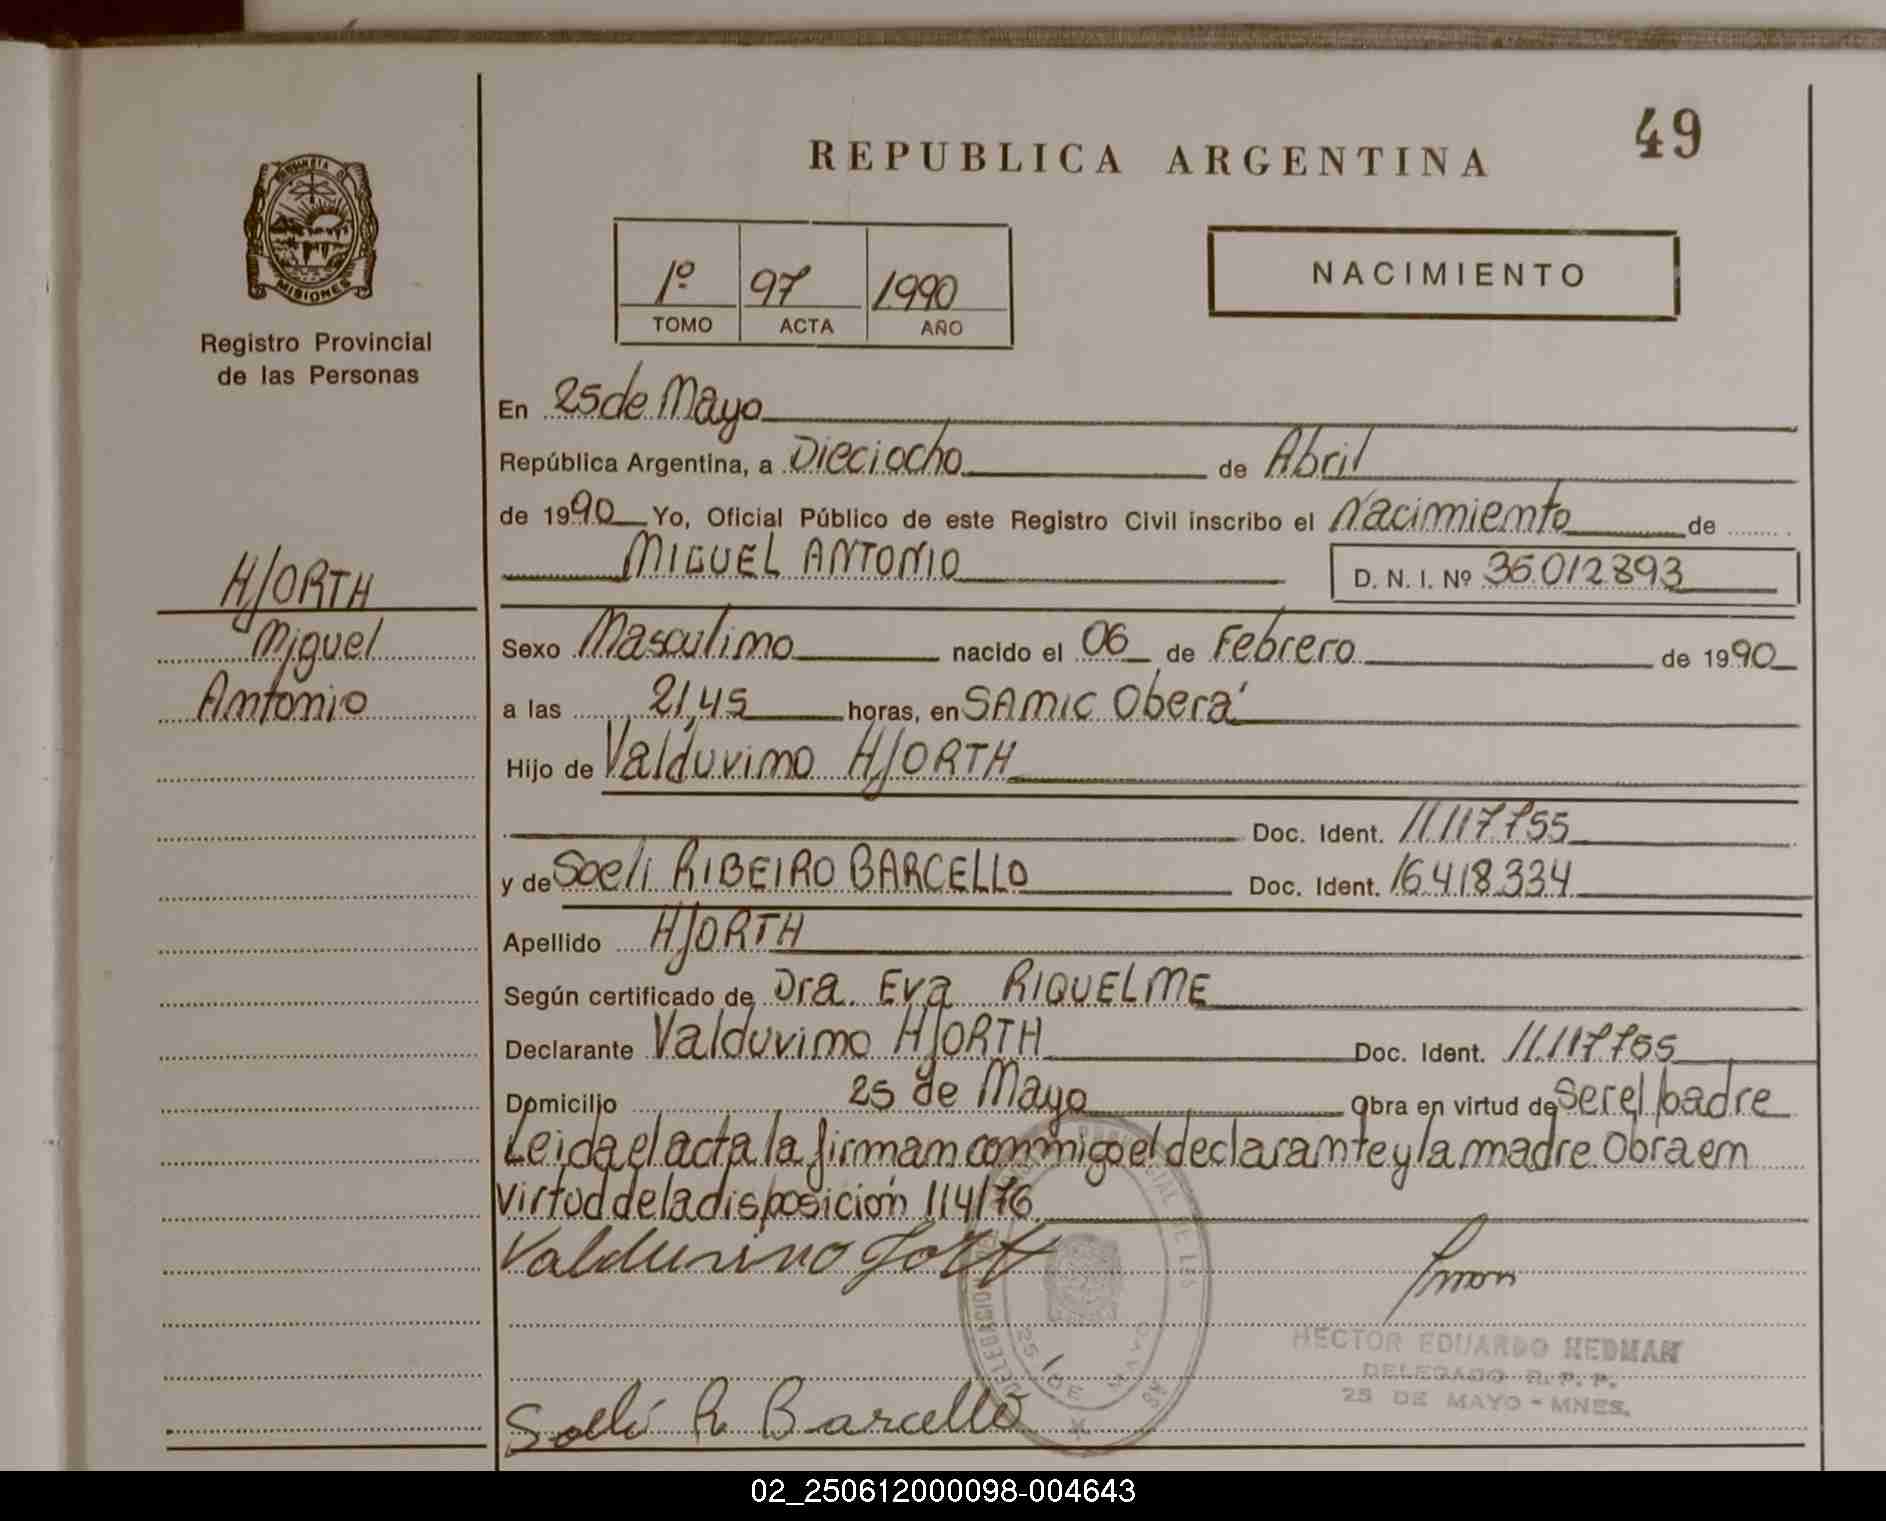 49
REPUBLICA ARGENTINA
MISIONES
Registro Provincial
de las Personas
1º 97 1990
TOMO ACTA AÑO
NACIMIENTO
En 25 de Mayo
República Argentina, a Dieciocho de Abril
de 1990 Yo, Oficial Público de este Registro Civil inscribo el Nacimiento de
MIGUEL ANTONIO D. N. I. Nº 35.012.893
HJORTH
Miguel
Antonio
Sexo Masculino nacido el 06 de Febrero de 1990
a las 21,45 horas, en SAMIC Oberá
Hijo de Valduvino HJORTH
Doc. Ident. 11.117.755
y de Soeli RIBEIRO BARCELLO Doc. Ident. 16.418.334
Apellido HJORTH
Según certificado de Dra. Eva RIQUELME
Declarante Valduvino HJORTH Doc. Ident. 11.117.755
Domicilio 25 de Mayo Obra en virtud de ser el padre
Leida el acta la firman conmigo el declarante y la madre. Obra en
virtud de la disposición 114/76.
Valduvino
HECTOR EDUARDO HEDMAN
DELEGADO R. P. P.
25 DE MAYO - MNES.
25 DE MAYO
Soeli R Barcello
02_250612000098-004643